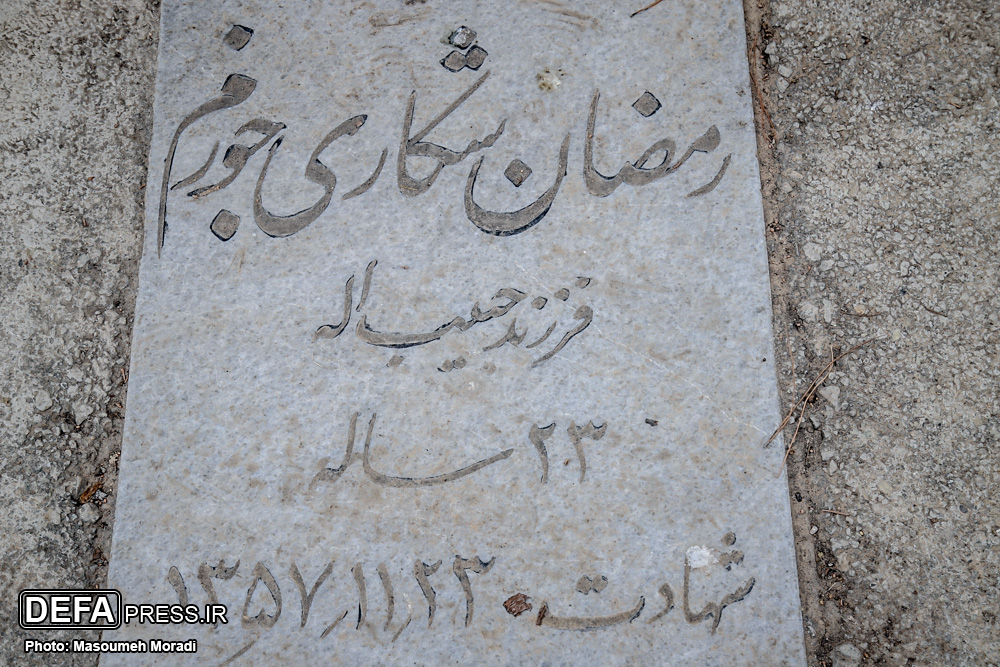 رمضان شکاری جوزم
فرزند حبیب اله
۲۳ ساله
شهادت ۱۳۵۷٫۱۱٫۲۳
DEFAPRESS.IR
Photo: Masoumeh Moradi